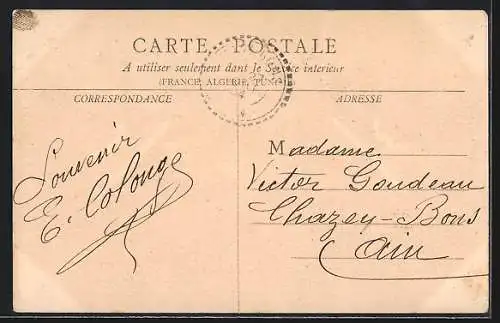 CARTE POSTALE
A utiliser seulement dans le Service intérieur
(FRANCE, ALGERIE, TUNIS
CORRESPONDANCE
ADRESSE
Souvenir
E. Colonge
Madame
Victor Goudeau
Chazey-Bons
Ain